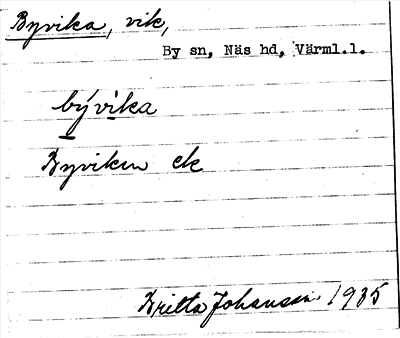 Byvika, vik,
By sn, Näs hd, Värml.l.
bývika
Byviken ek
Britta Johansson 1935